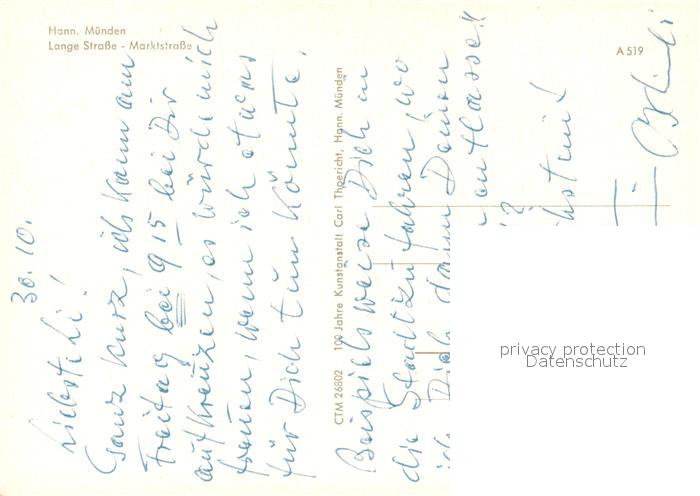 Hann. Münden
Lange Straße - Marktstraße
A 519
CTM 26802 100 Jahre Kunstanstalt Carl Thoericht, Hann. Münden
30. 10.
Ganz kurz, ich kann am
Freitag bei 9 15 bei Dir
aufkreuzen, es würde mich
freuen, wenn ich etwas
für Dich tun könnte,
Beispielsweise Dich in
die Stadt zu fahren, wo
ich Dich dann Deinen
entlasse!!
?
privacy protection
Datenschutz